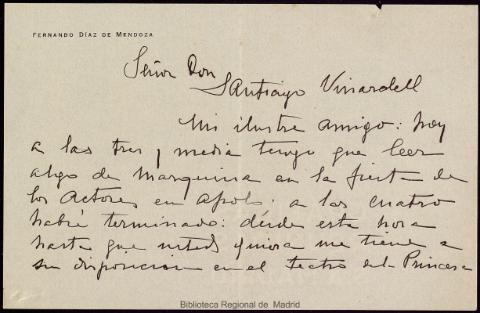 FERNANDO DÍAZ DE MENDOZA
Señor Don
Santiago Vinardell
Mi ilustre amigo: hoy
a las tres y media tengo que leer
algo de Marquina en la fiesta de
los Actores en Apolo: a las cuatro
habré terminado: desde esta hora
hasta que usted quiera me tiene a
su disposicion en el teatro de la Princesa
Biblioteca Regional de Madrid